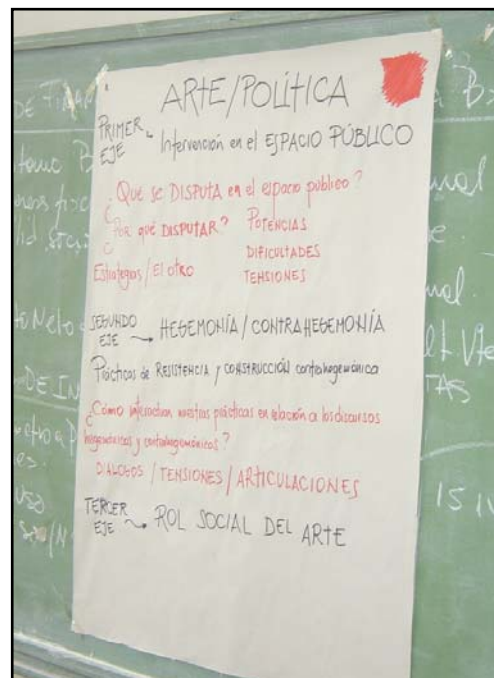 ARTE/POLÍTICA
PRIMER EJE → Intervención en el ESPACIO PÚBLICO
¿Qué se DISPUTA en el espacio público?
¿Por qué DISPUTAR? POTENCIAS
DIFICULTADES
Estrategias/El otro TENSIONES
SEGUNDO EJE → HEGEMONÍA/CONTRAHEGEMONÍA
Prácticas de RESISTENCIA y CONSTRUCCIÓN contrahegemónica
¿Cómo interactúan nuestras prácticas en relación a los discursos
hegemónicos y contrahegemónicos?
DIÁLOGOS / TENSIONES / ARTICULACIONES
TERCER EJE → ROL SOCIAL DEL ARTE
DE
DE IN
TAS
15